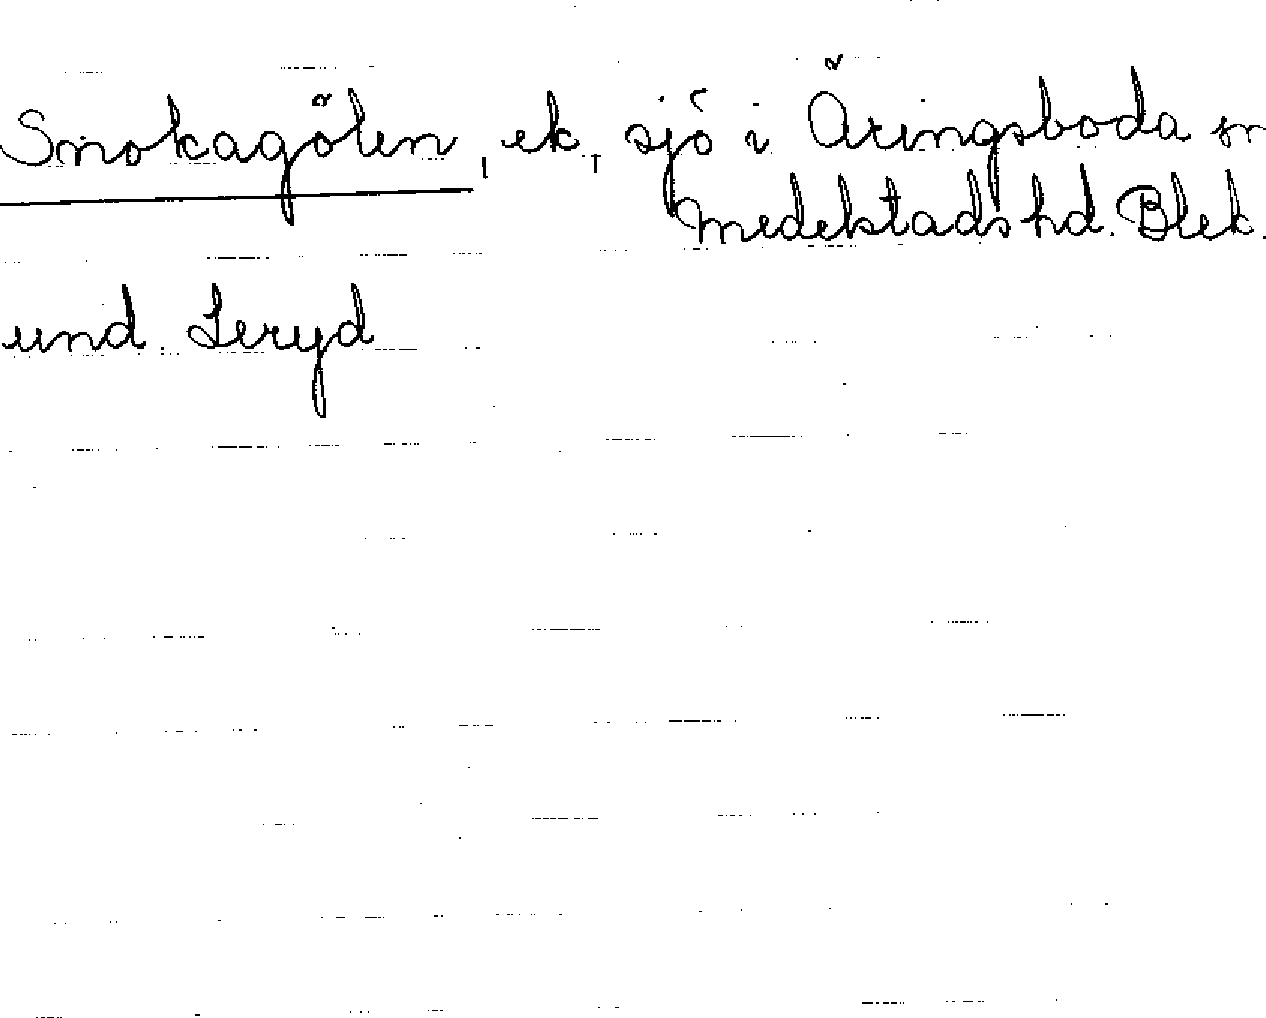 Snokagölen, ek., sjö i Åringsboda sn
Medelstads hd. Blek.
und. Leryd